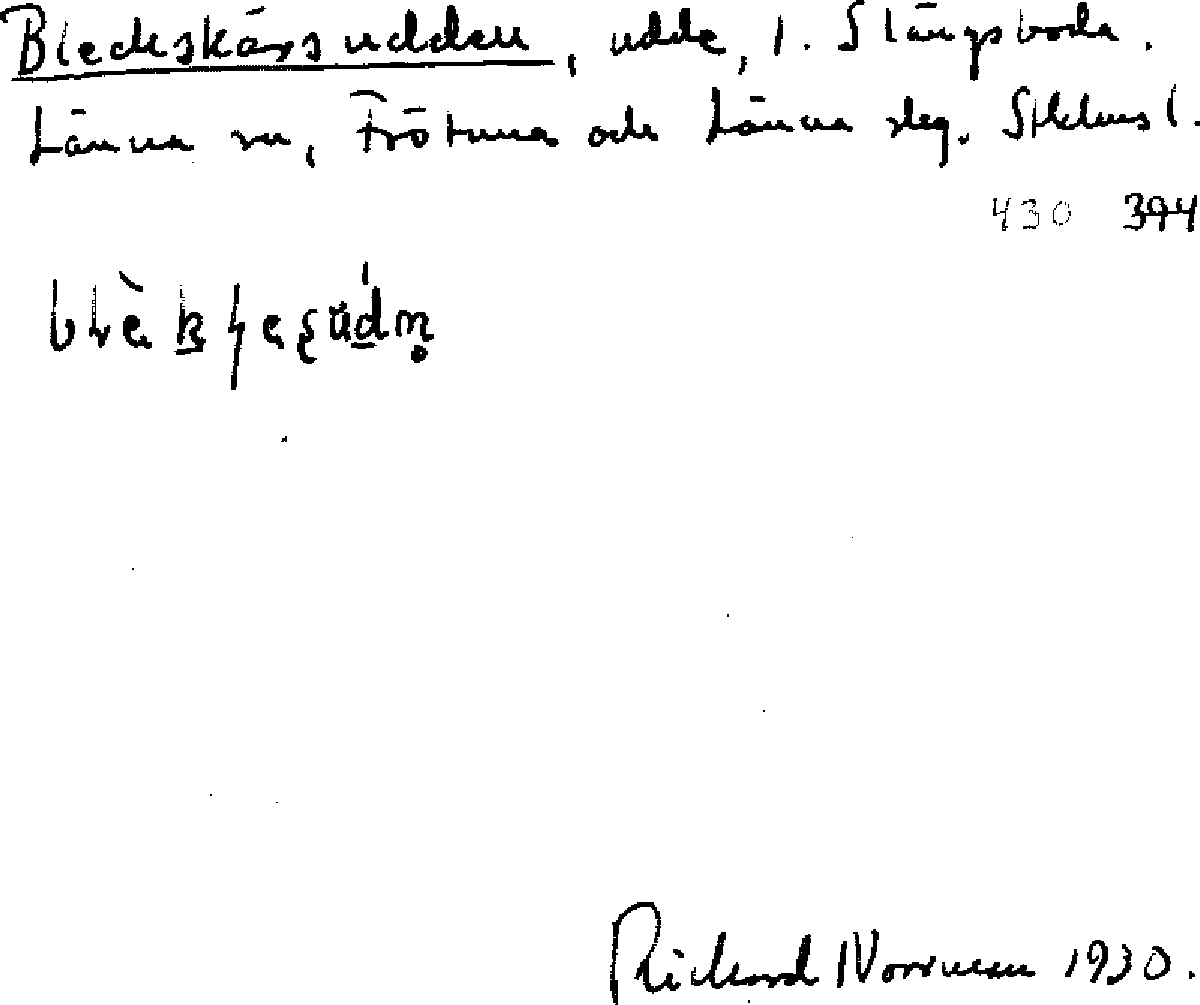 Bleckskärsudden, udde, 1. Slängsboda.
Länna sn, Frötuna och Länna skg. Sthlms l.
430 394
Rickard Norrman 1930.